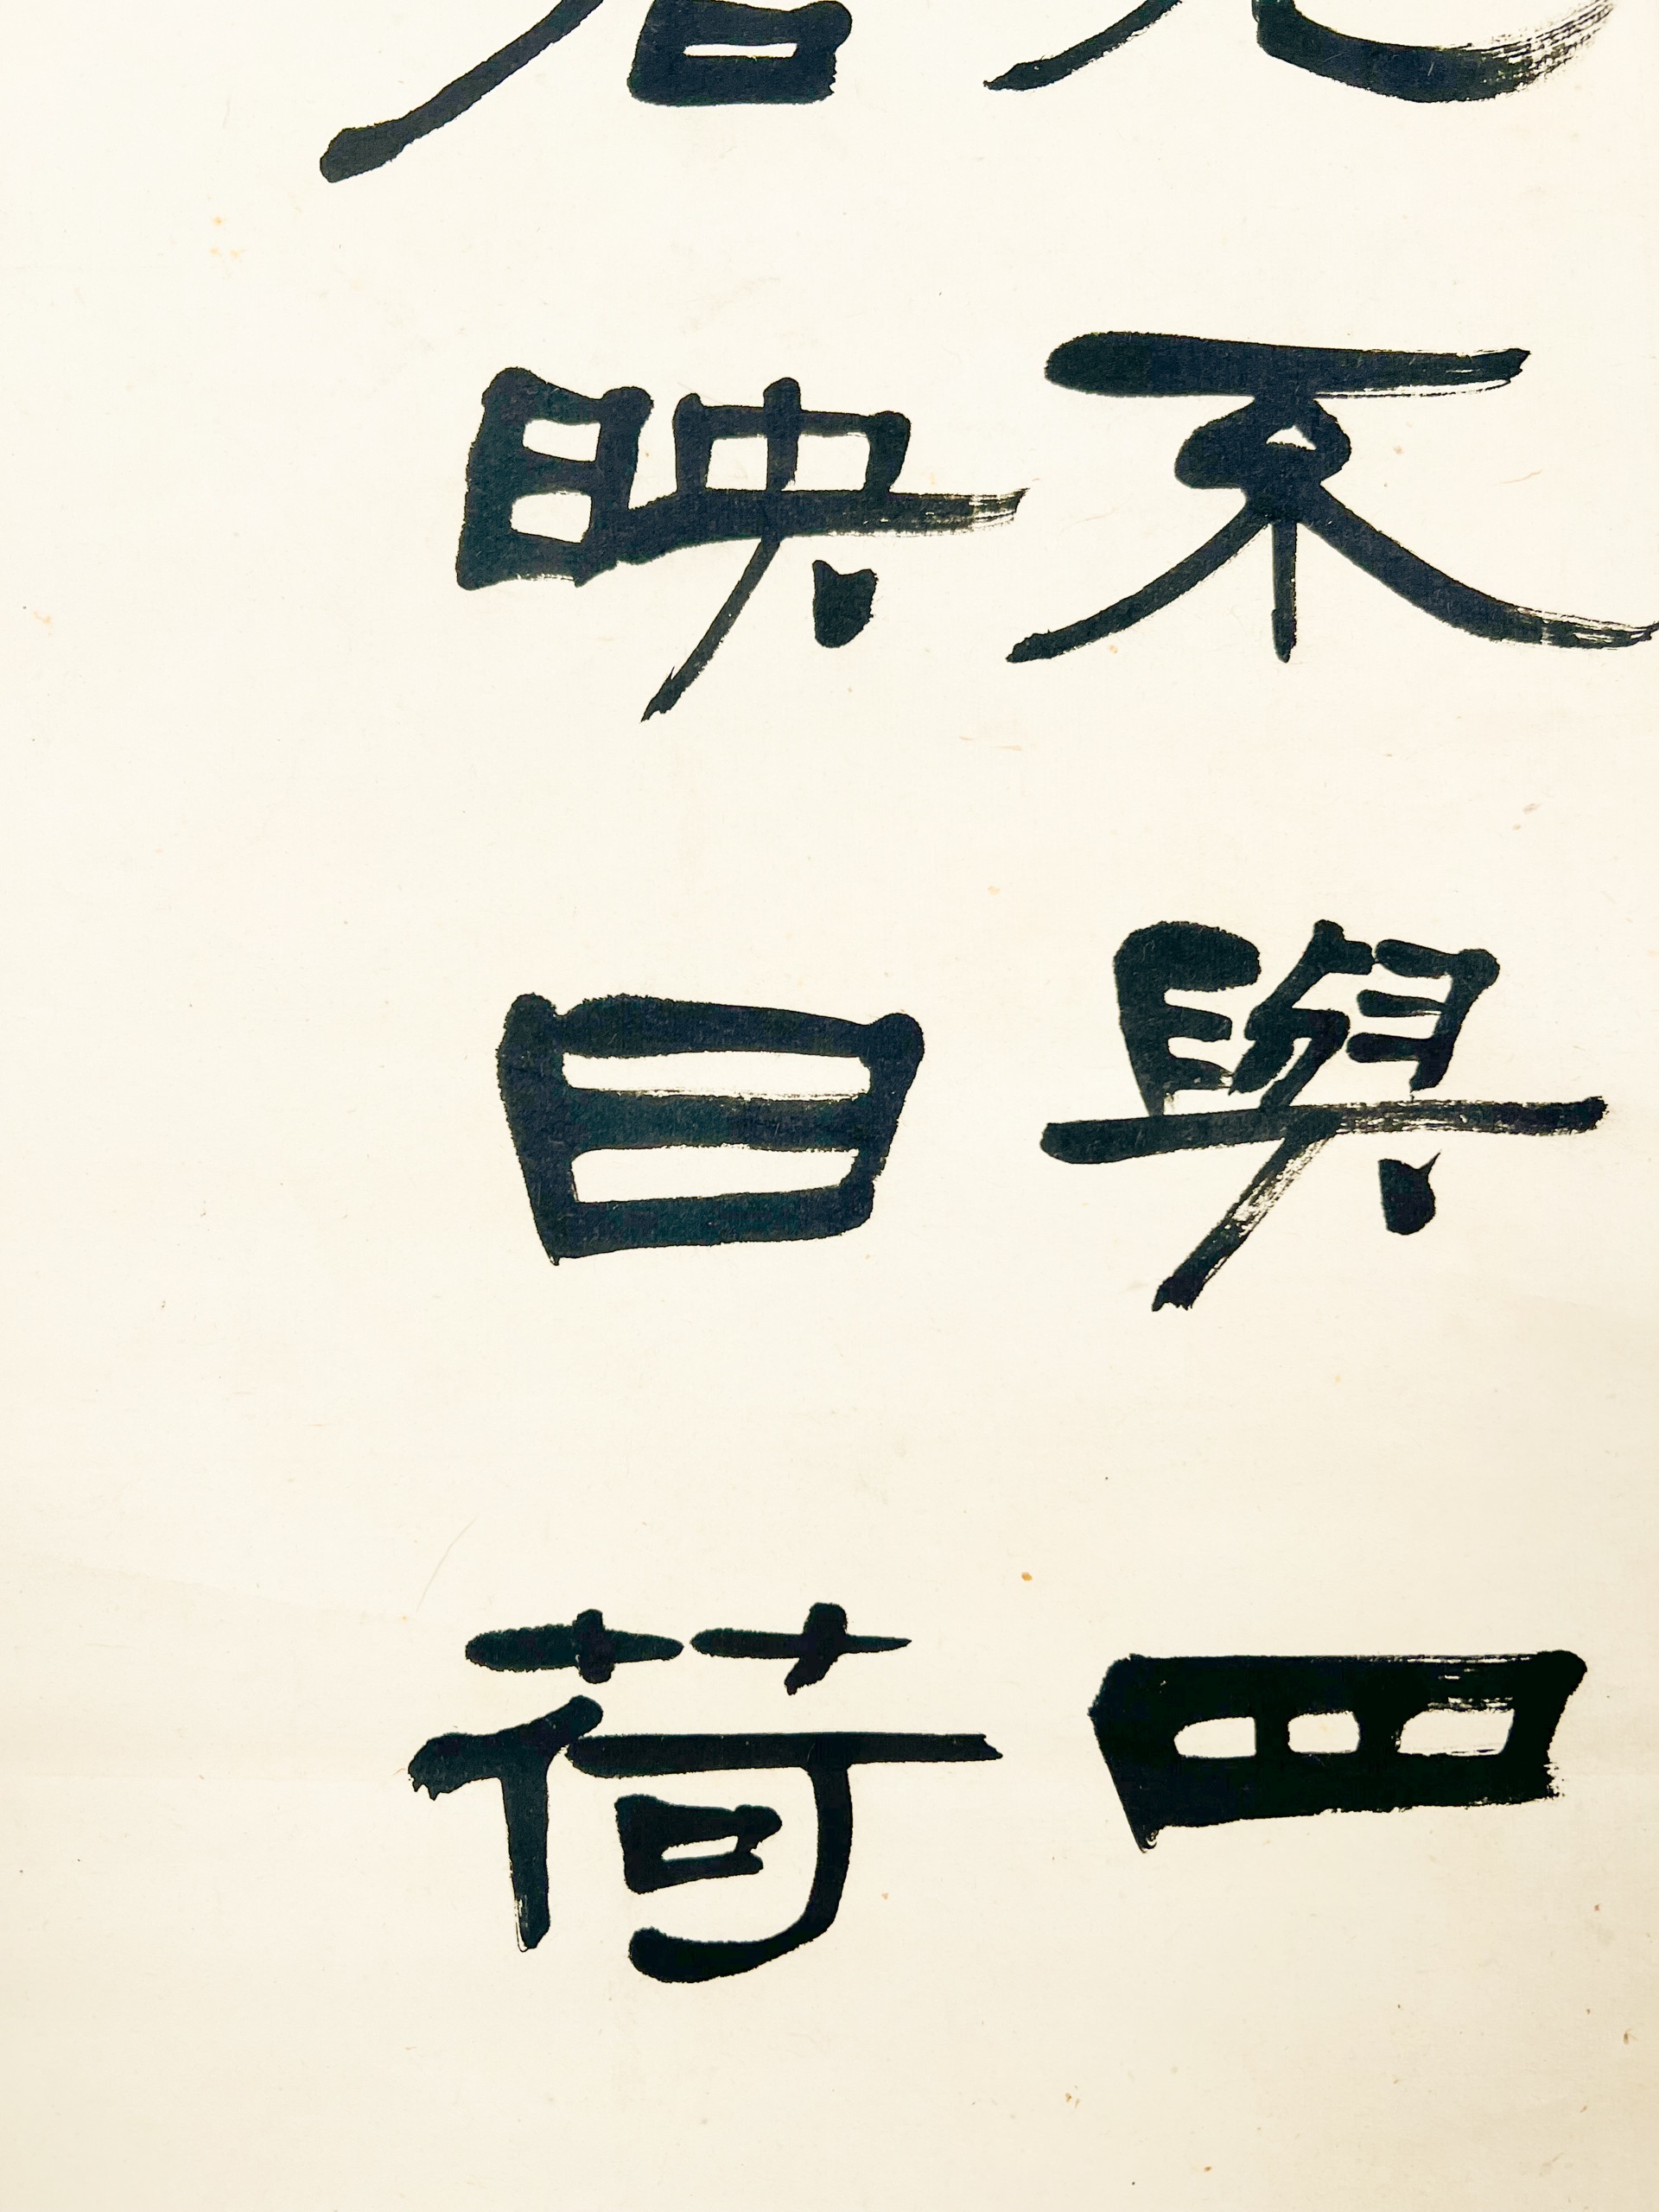 不與四
映日荷